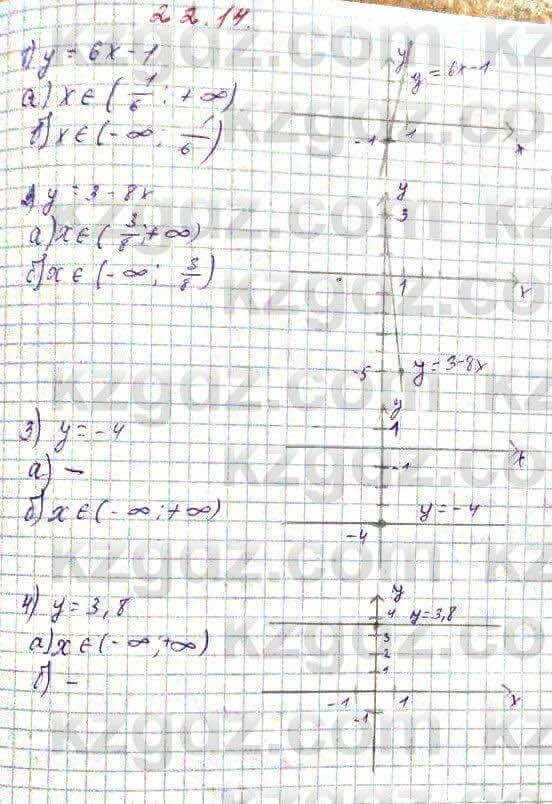 22.14.
1) y = 6x - 1
а) x ∈ (1/6 ; +∞)
б) x ∈ (-∞ ; 1/6)
y
y = 6x-1
1
-1
x
2) y = 3 - 8x
а) x ∈ (3/8 ; +∞)
б) x ∈ (-∞ ; 3/8)
y
3
1
x
-5
y = 3-8x
3) y = -4
а) -
б) x ∈ (-∞ ; +∞)
y
1
x
-1
y = -4
-4
4) y = 3,8
а) x ∈ (-∞ ; +∞)
б) -
y
4
y = 3,8
3
2
1
-1
1
x
-1
kzgdz.com